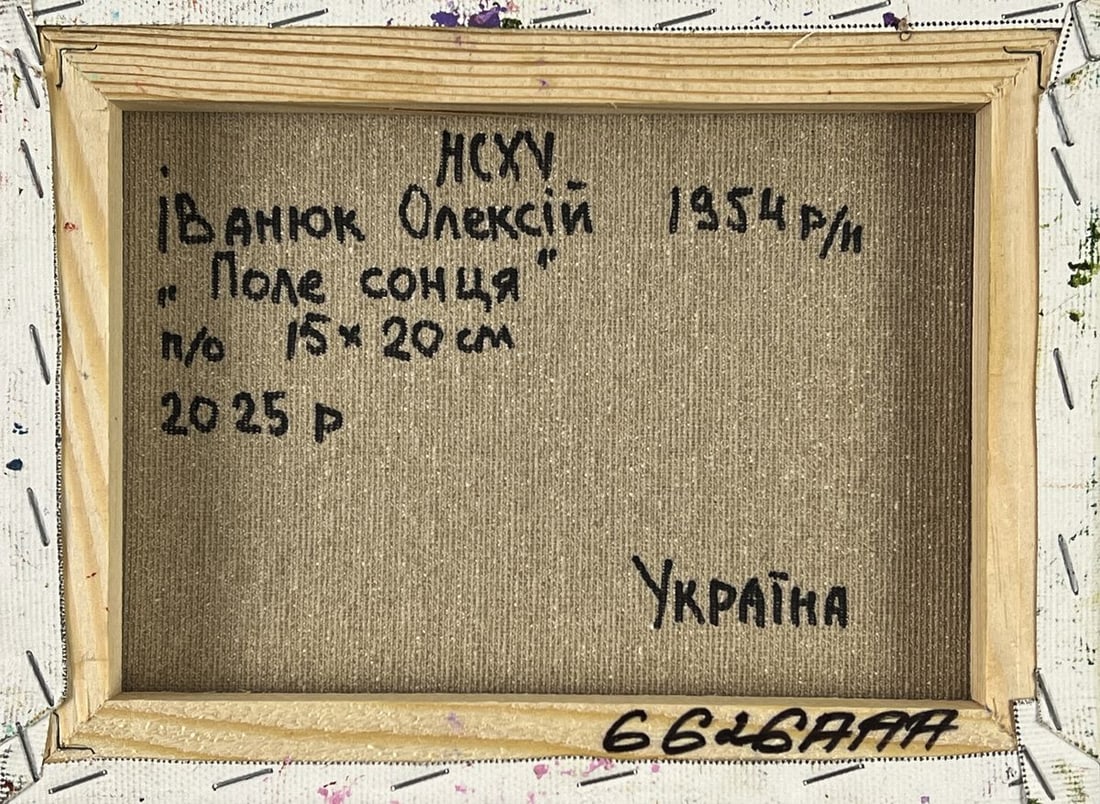 НСХУ
Іванюк Олексій 1954 р/н
„Поле сонця"
п/о 15 × 20 см
2025 р
Україна
6626ААА